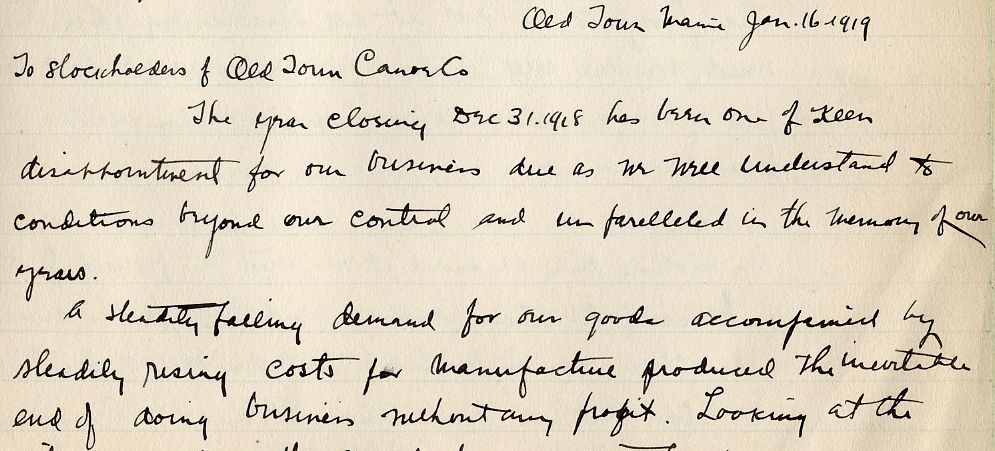 Old Town Maine Jan. 16-1919
To Stockholders of Old Town Canoe Co
The year closing Dec 31. 1918 has been one of Keen
disappointment for our business due as we well understand to
conditions beyond our control and unparelleled in the memory of our
years.
A steadily falling demand for our goods accompanied by
steadily rising costs for manufacture produced the inevitable
end of doing business without any profit. Looking at the